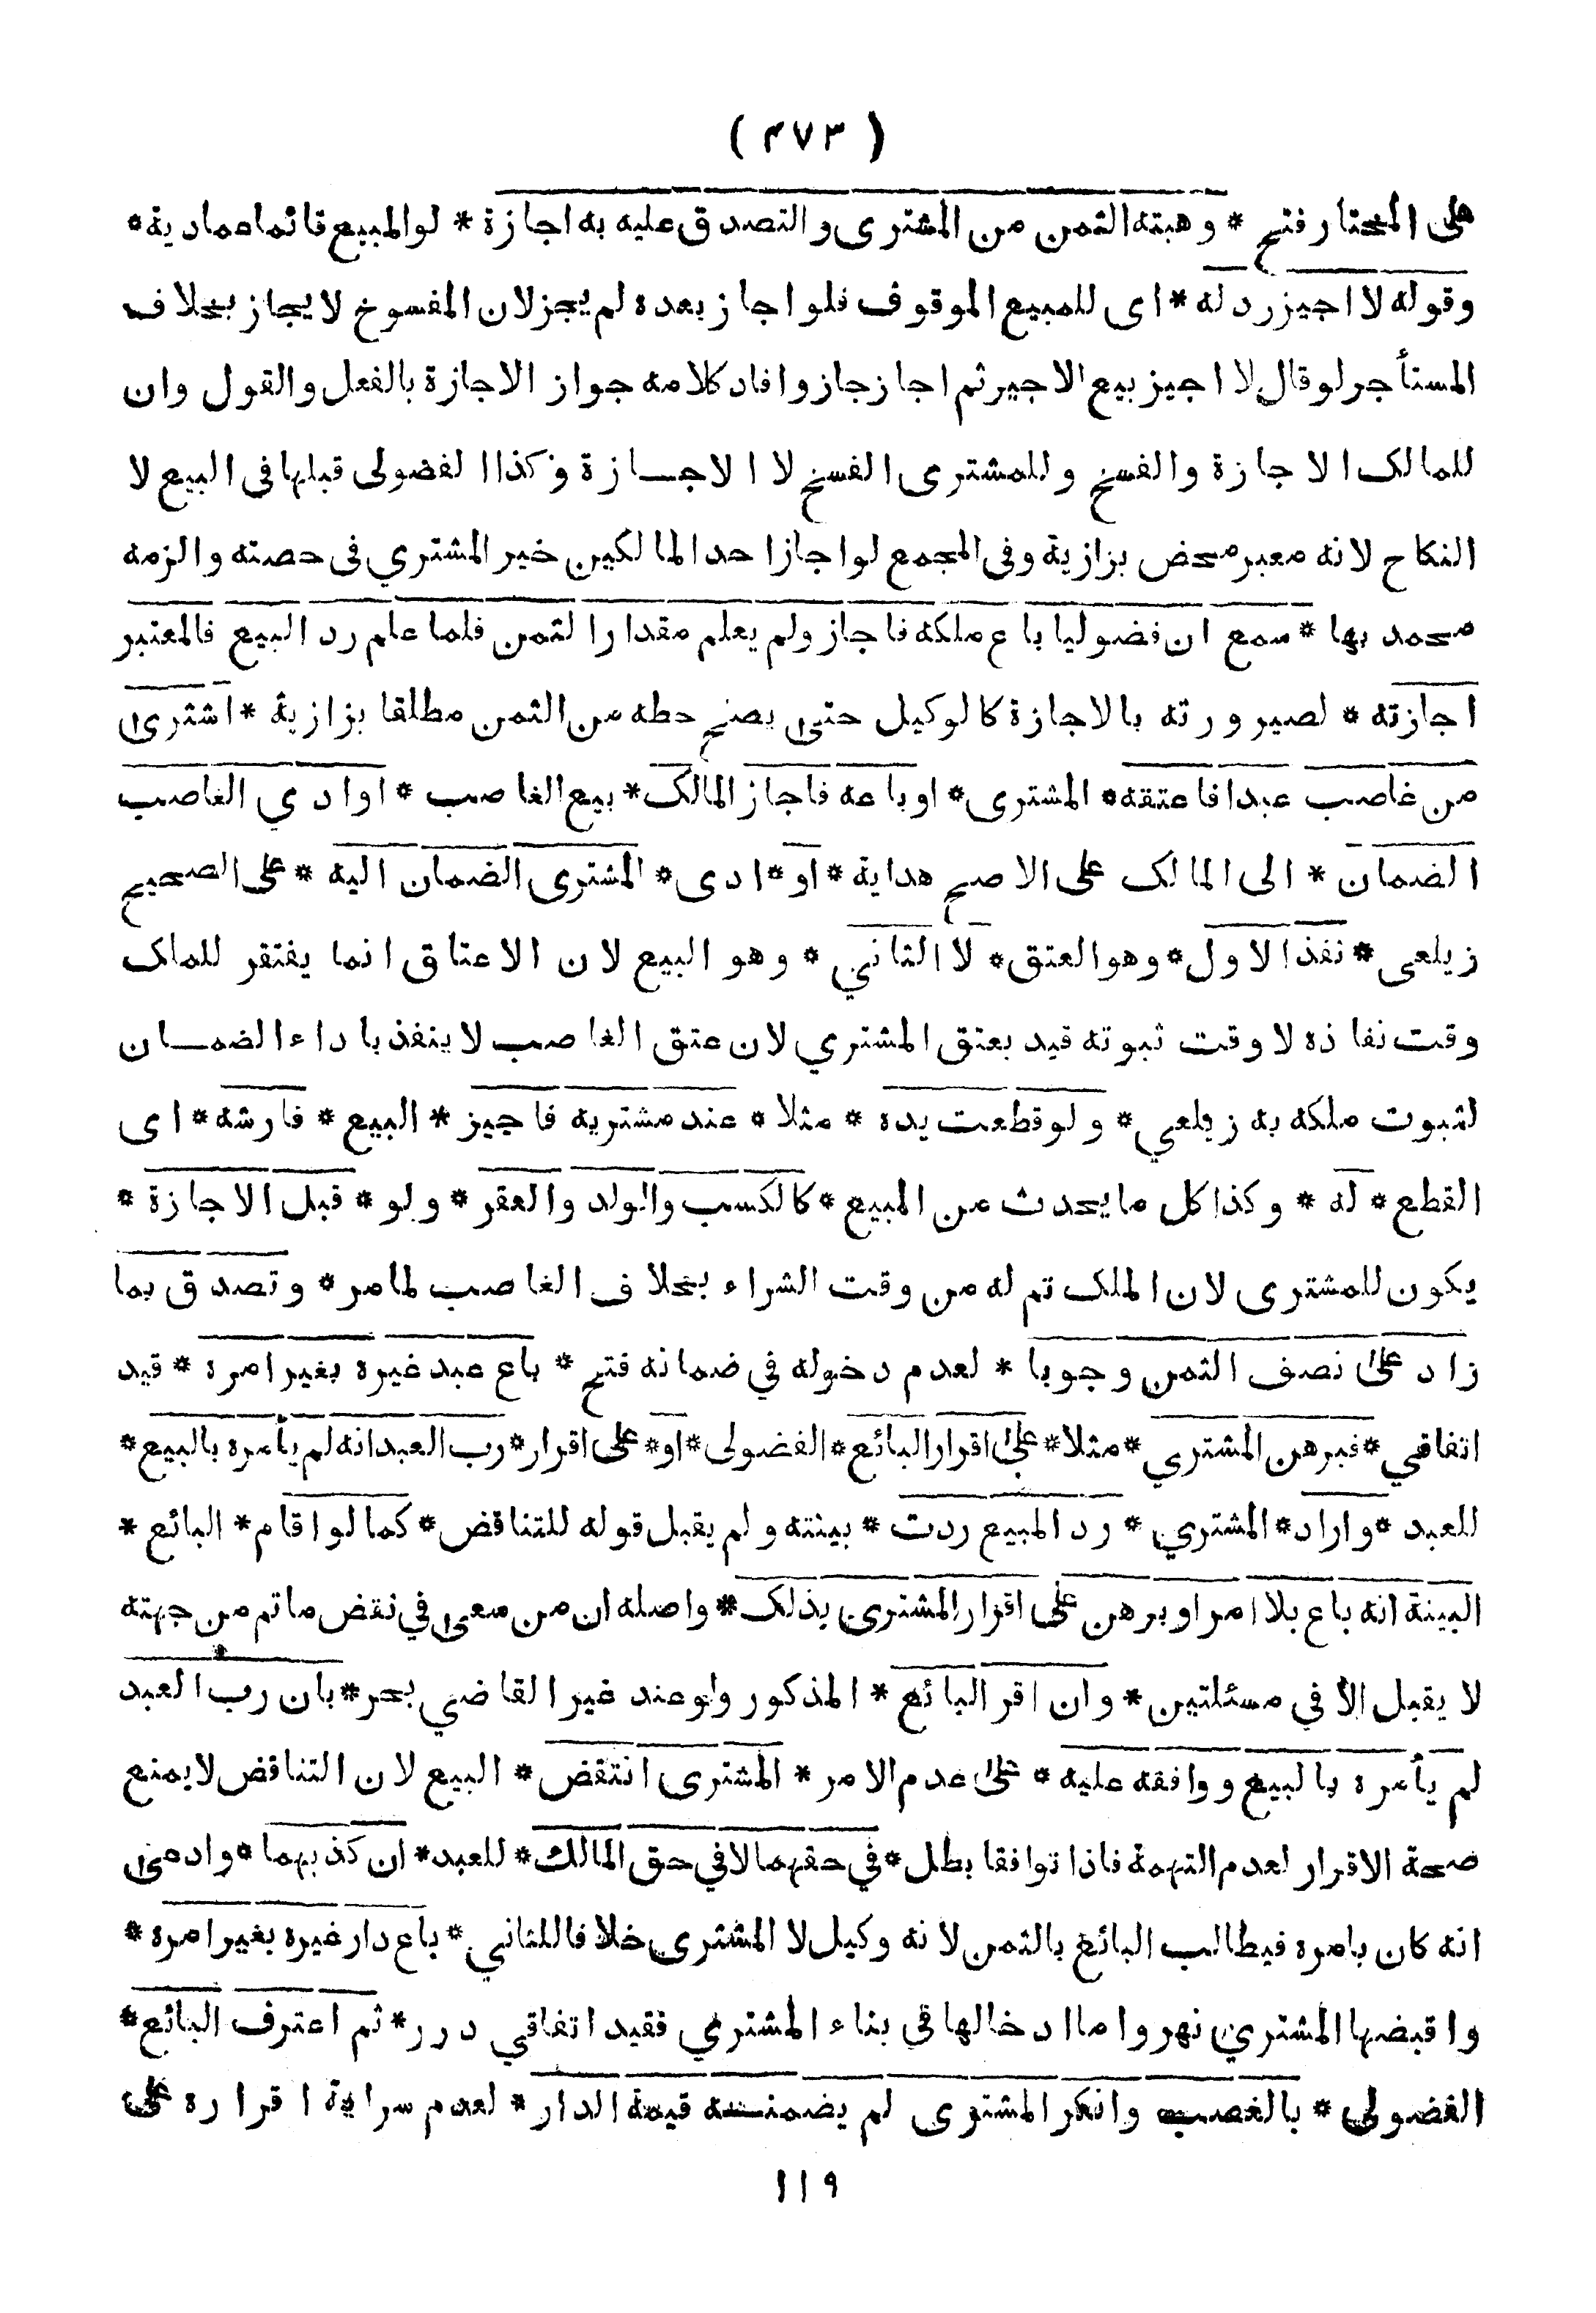 ( ۴۷۳ )
على المختار فتح * وهبته الثمن من المشترى والتصدق عليه به اجازة * لو المبيع قائما عمادية *
وقوله لا اجيز رد له * اى للمبيع الموقوف فلو اجاز بعده لم يجز لان المفسوخ لا يجاز بخلاف
المستأجر لو قال لا اجيز بيع الاجير ثم اجاز جاز وافاد كلامه جواز الاجازة بالفعل والقول وان
للمالك الاجازة والفسخ وللمشترى الفسخ لا الاجازة وكذا الفضولى قبلها فى البيع لا
النكاح لانه معبر محض بزازية وفى المجمع لو اجاز احد المالكين خير المشتري فى حصته والزمه
محمد بها * سمع ان فضوليا باع ملكه فاجاز ولم يعلم مقدار الثمن فلما علم رد البيع فالمعتبر
اجازته * لصيرورته بالاجازة كالوكيل حتى يصح حطه من الثمن مطلقا بزازية * اشترى
من غاصب عبدا فاعتقه * المشترى * او باعه فاجاز المالك * بيع الغاصب * او ادي الغاصب
الضمان * الى المالك على الاصح هداية * او * ادى * المشترى الضمان اليه * على الصحيح
زيلعى * نفذ الاول * وهو العتق * لا الثاني * وهو البيع لان الاعتاق انما يفتقر للملك
وقت نفاذه لا وقت ثبوته قيد بعتق المشتري لان عتق الغاصب لا ينفذ باداء الضمان
لثبوت ملكه به زيلعي * ولو قطعت يده * مثلا * عند مشتريه فاجيز * البيع * فارشه * اى
القطع * له * وكذا كل ما يحدث من المبيع * كالكسب والولد والعقر * ولو * قبل الاجازة *
يكون للمشترى لان الملك تم له من وقت الشراء بخلاف الغاصب لما مر * وتصدق بما
زاد على نصف الثمن وجوبا * لعدم دخوله في ضمانه فتح * باع عبد غيره بغير امره * قيد
اتفاقي * فبرهن المشتري * مثلا * على اقرار البائع * الفضولى * او * على اقرار * رب العبد انه لم يأمره بالبيع *
للعبد * واراد * المشتري * رد المبيع ردت * بينته ولم يقبل قوله للتناقض * كما لو اقام * البائع *
البينة انه باع بلا امر او برهن على اقرار المشترى بذلك * واصله ان من سعى في نقض ما تم من جهته
لا يقبل الا في مسئلتين * وان اقر البائع * المذكور ولو عند غير القاضي بحر * بان رب العبد
لم يأمره بالبيع ووافقه عليه * على عدم الامر * المشترى انتقض * البيع لان التناقض لا يمنع
صحة الاقرار لعدم التهمة فاذا توافقا بطل * في حقهما لا في حق المالك * للعبد * ان كذبهما * وادعى
انه كان بامره فيطالب البائع بالثمن لانه وكيل لا المشترى خلافا للثاني * باع دار غيره بغير امره *
واقبضها المشتري نهر واما ادخالها فى بناء المشتري فقيد اتفاقي درر * ثم اعترف البائع *
الفضولى * بالغصب وانكر المشترى لم يضمنه قيمة الدار * لعدم سراية اقراره على
۱۱۹